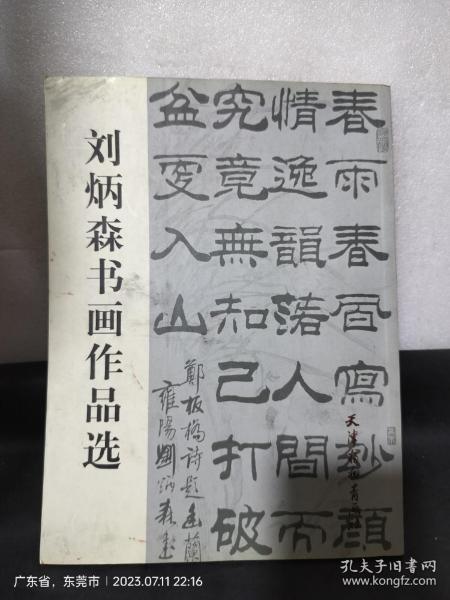 刘炳森书画作品选
春雨春風寫妙顔
情逸韻落人間而
究竟無知己打破
盆更入山
鄭板橋詩題幽蘭
雍陽劉炳森書
天津楊柳青畫社
广东省，东莞市 | 2023.07.11 22:16
孔夫子旧书网